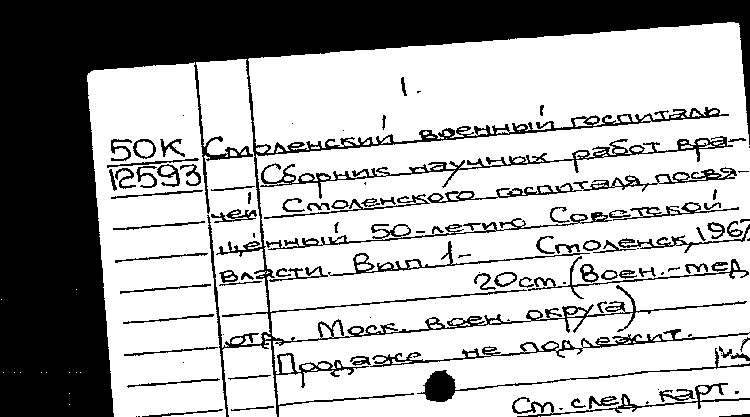 1.
50К Смоленский военный госпиталь
12593 Сборник научных работ вра-
чей Смоленского госпиталя, посвя-
щённый 50-летию Советской
власти. Вып. 1- Смоленск, 1967
20см. (Воен.-мед.
отд. Моск. воен. округа).
Продаже не подлежит.
См. след. карт.